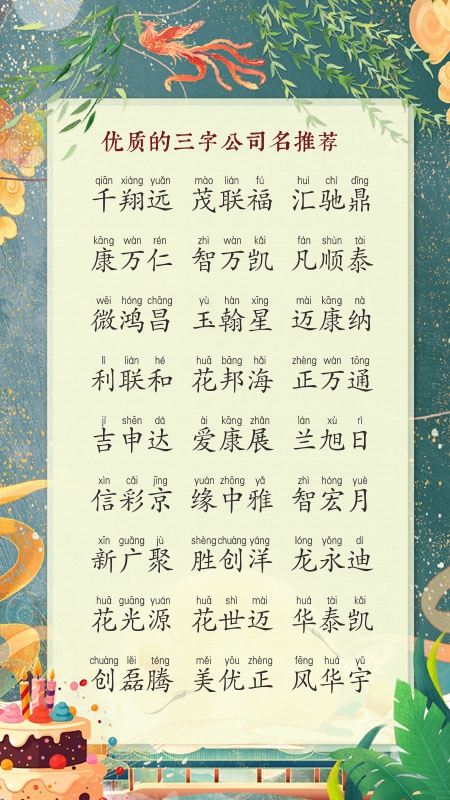 优质的三字公司名推荐
qiān xiáng yuǎn mào lián fú huì chí dǐng
千翔远 茂联福 汇驰鼎
kāng wàn rén zhì wàn kǎi fán shùn tài
康万仁 智万凯 凡顺泰
wēi hóng chāng yù hàn xīng mài kāng nà
微鸿昌 玉翰星 迈康纳
lì lián hé huā bāng hǎi zhèng wàn tōng
利联和 花邦海 正万通
jí shēn dá ài kāng zhǎn lán xù rì
吉申达 爱康展 兰旭日
xìn cǎi jīng yuán zhōng yǎ zhì hóng yuè
信彩京 缘中雅 智宏月
xīn guǎng jù shèng chuàng yáng lóng yǒng dí
新广聚 胜创洋 龙永迪
huā guāng yuán huā shì mài huá tài kǎi
花光源 花世迈 华泰凯
chuàng lěi téng měi yōu zhèng fēng huá yǔ
创磊腾 美优正 风华宇